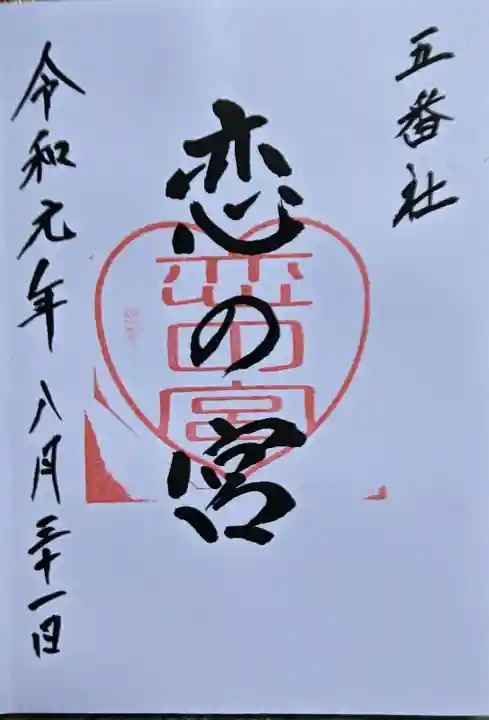 五番社
恋の宮
恋の宮
令和元年八月三十一日